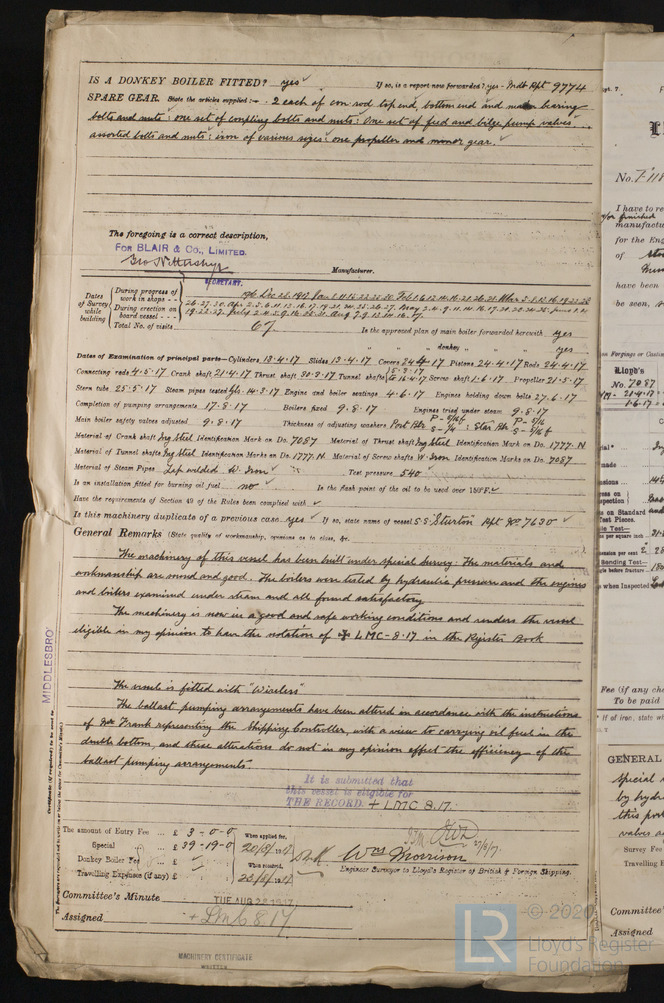 IS A DONKEY BOILER FITTED? yes If so, is a report now forwarded? yes - Mdb Rpt 9774
SPARE GEAR. State the articles supplied:- 2 each of con rod top end, bottom end and main bearing
bolts and nuts: one set of coupling bolts and nuts: One set of feed and bilge pump valves.
assorted bolts and nuts: iron of various sizes: one propeller and minor gear.
The foregoing is a correct description,
FOR BLAIR & CO., LIMITED.
SECRETARY. Manufacturer.
Dates of Survey while building
During progress of work in shops - -
During erection on board vessel - - -
Total No. of visits 67 Is the approved plan of main boiler forwarded herewith yes
" " " donkey " " " yes
Dates of Examination of principal parts—Cylinders 13.4.17 Slides 13.4.17 Covers 24.4.17 Pistons 24.4.17 Rods 24.4.17
Connecting rods 4.5.17 Crank shaft 21.4.17 Thrust shaft 30.3.17 Tunnel shafts to 16.4.17 Screw shaft 1.6.17 Propeller 21.5.17
Stern tube 25.5.17 Steam pipes tested 14.3.17 Engine and boiler seatings 4.6.17 Engines holding down bolts 27.6.17
Completion of pumping arrangements 17.8.17 Boilers fixed 9.8.17 Engines tried under steam 9.8.17
Main boiler safety valves adjusted 9.8.17 Thickness of adjusting washers Port Blr Star Blr
Material of Crank shaft Ing Steel Identification Mark on Do. 7087 Material of Thrust shaft Ing Steel Identification Mark on Do. 1777.N
Material of Tunnel shafts Ing Steel Identification Marks on Do. 1777.N Material of Screw shafts W. Iron Identification Marks on Do. 7087
Material of Steam Pipes Lap welded W. Iron Test pressure 540
Is an installation fitted for burning oil fuel no Is the flash point of the oil to be used over 150°F.
Have the requirements of Section 49 of the Rules been complied with
Is this machinery duplicate of a previous case yes If so, state name of vessel S.S. "Sturton" Rpt No 7630
General Remarks (State quality of workmanship, opinions as to class, &c.
The machinery of this vessel has been built under special survey: The materials and
workmanship are sound and good. The boilers were tested by hydraulic pressure and the engines
and boilers examined under steam and all found satisfactory
The machinery is now in a good and safe working conditions and renders the vessel
eligible in my opinion to have the notation of + LMC-8.17 in the Register Book
The vessel is fitted with "Wireless"
The ballast pumping arrangements have been altered in accordance with the instructions
of Mr Frank representing the Shipping Controller, with a view to carrying oil fuel in the
double bottom, and these alterations do not in my opinion affect the efficiency of the
ballast pumping arrangements.
It is submitted that
this vessel is eligible for
THE RECORD. + LMC 8.17.
The amount of Entry Fee ... £ 3-0-0 When applied for,
Special ... £ 39-19-0
Donkey Boiler Fee ... £ When received,
Travelling Expenses (if any) £
Wm Morrison
Engineer Surveyor to Lloyd's Register of British & Foreign Shipping.
Committee's Minute TUE. AUG 28 1917
Assigned + LMC 8.17
MACHINERY CERTIFICATE
WRITTEN
MIDDLESBRO'
I have to re
manufactu
for the Eng
of
have been
be seen,
Lloyd's
No. 7087
Fee (if any cha
To be paid
GENERAL
Special
by hydra
this port
valves
Survey Fee
Travelling E
Committee'
Assigned
LR
© 2020
Lloyd's Register
Foundation